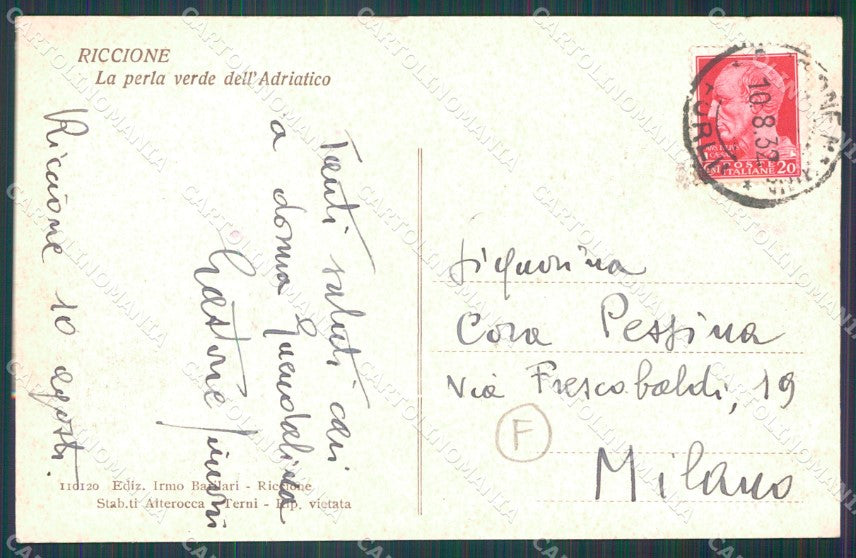 RICCIONE
La perla verde dell'Adriatico
Riccione 10 agosto.
Tanti saluti cari
a donna Guendalina
Gastone
10.8.32
POSTE
ITALIANE 20
Signorina
Cora Pessina
Via Frescobaldi, 19
Milano
F
110120 Ediz. Irmo Barilari - Riccione
Stab.ti Alterocca - Terni - Rip. vietata
CARTOLINOMANIA